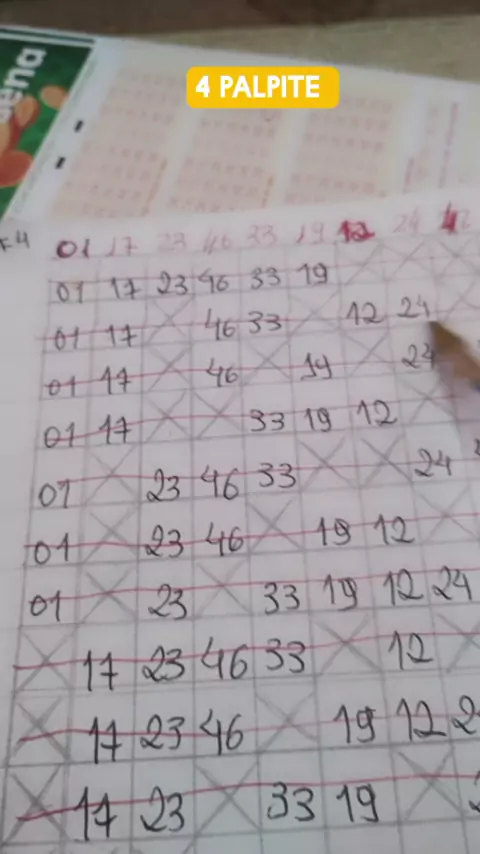 4 PALPITE
ena
F4 01 17 23 46 33 19 12 24 42
01 17 23 46 33 19
01 17 46 33 12 24
01 17 46 19 24
01 17 33 19 12
01 23 46 33 24
01 23 46 19 12
01 23 33 19 12 24
17 23 46 33 12
17 23 46 19 12 2
17 23 33 19